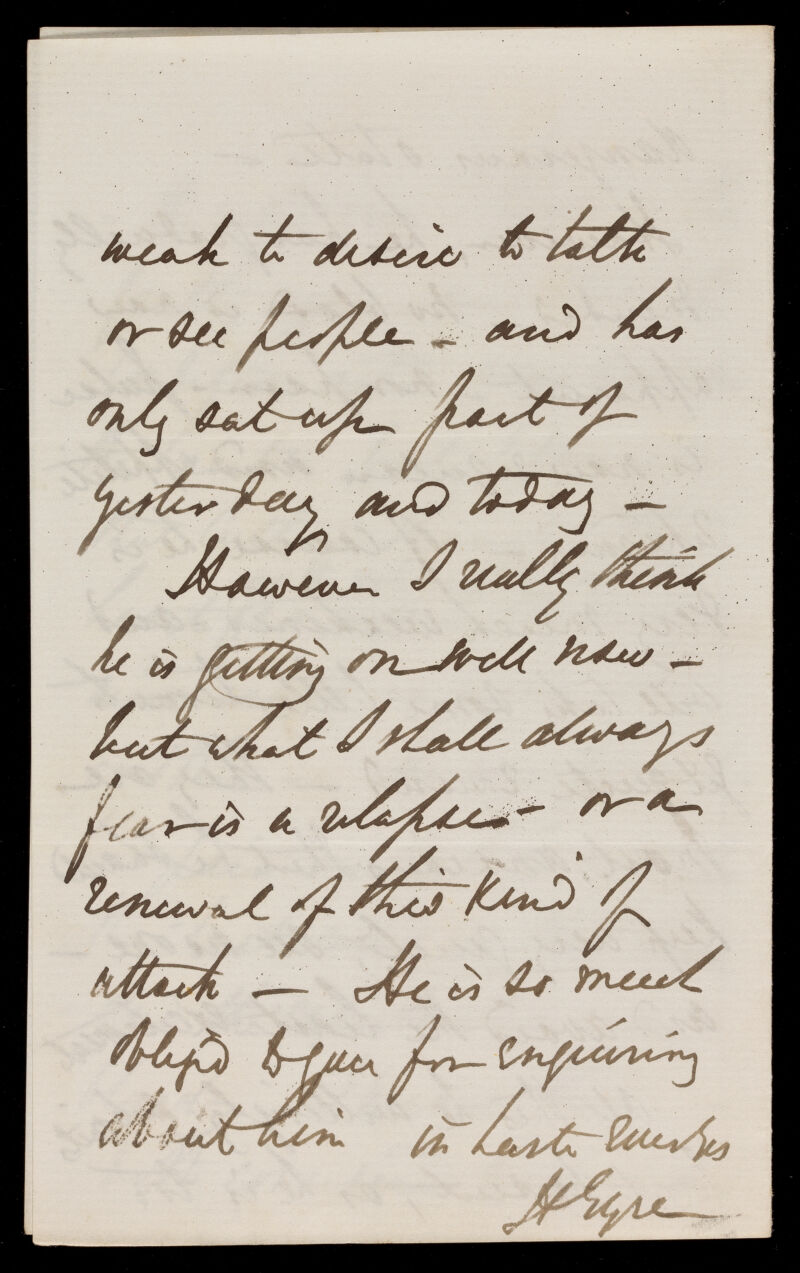 weak to desire to talk
or see people - and has
only sat up part of
yesterday and today -
However I really think
he is getting on well now -
but what I shall always
fear is a relapse - or a
renewal of this kind of
attack - He is so much
oblig'd to you for enquiring
about him in haste
H Eyre